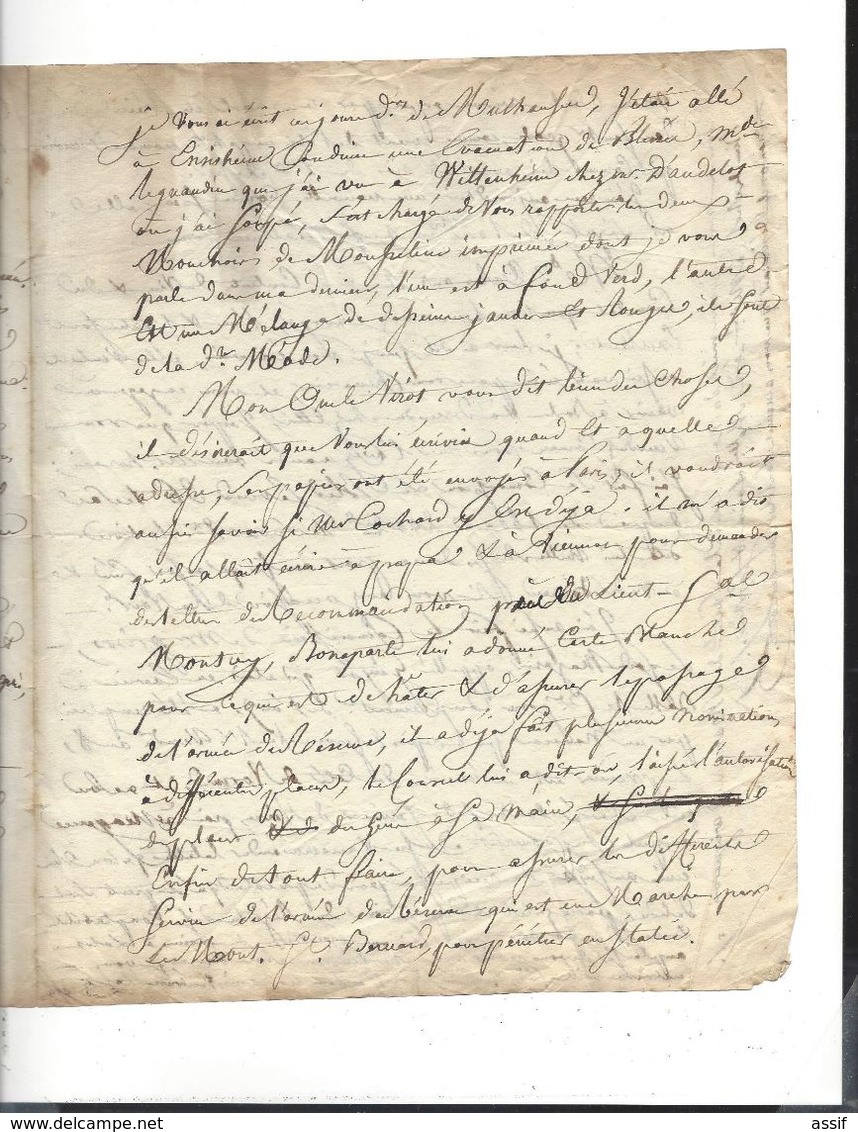 je vous ai écrit un jour dr. de Mulhausen, j'étais allé
à Ensisheim Conduire une Evacuation de Blessés, Mde
legrandin que j'ai vu à Wittenheim chez Mr D'andelot
ou j'ai soupé, s'est chargé de Vous rapporter les deux
Mouchoirs de Mousseline imprimée dont je vous
parle dans ma derniere, l'un est à fond Verd, l'autre
Est un Mélange de desseins jaunes Et Rouges, ils sont
de la dre. Mode.
Mon Oncle Virot vous dit bien des Choses,
il désirerait que Vous lui écriviez quand Et à quelle
adresse, ses papiers ont été envoyés à Paris, il voudrait
aussi savoir si Mr Cochard y est déja. il m'a dit
qu'il allait écrire à papa & à Viennot pour demander
des lettres de Recommandation du Lieut- Gal
Moncey, Bonaparte lui a donné Carte Blanche
pour ce qui est de hâter & d'assurer le passage
de l'armée de Réserve, il a déja fait plusieurs nominations
à differentes places, le Consul lui a, dit-on, laissé l'autorisation
du Genie à Sa Main,
Enfin de tout faire, pour assurer les differents
Service de l'armée de Réserve qui est en Marche par
Le Mont. St. Bernard, pour pénétrer en Italie.
assif